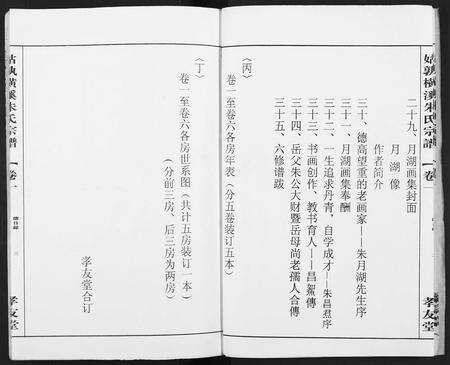 姑孰横溪朱氏宗谱
卷一
孝友堂
二十九、月湖画集封面
月湖像
作者简介
三十、德高望重的老画家——朱月湖先生序
三十一、月湖画集奉酬
三十二、一生追求丹青，自学成才——朱昌焄序
三十三、书画创作、教书育人——昌䋚傳
三十四、岳父朱公大财暨岳母尚老孺人合傳
三十五、六修谱跋
（丙）
卷一至卷六各房年表（分五卷装订五本）
（丁）
卷一至卷六各房世系图（共计五房装订一本）
（分前三房、后三房为两房）
孝友堂合订
姑孰横溪朱氏宗譜
卷一
總目録
三
孝友堂